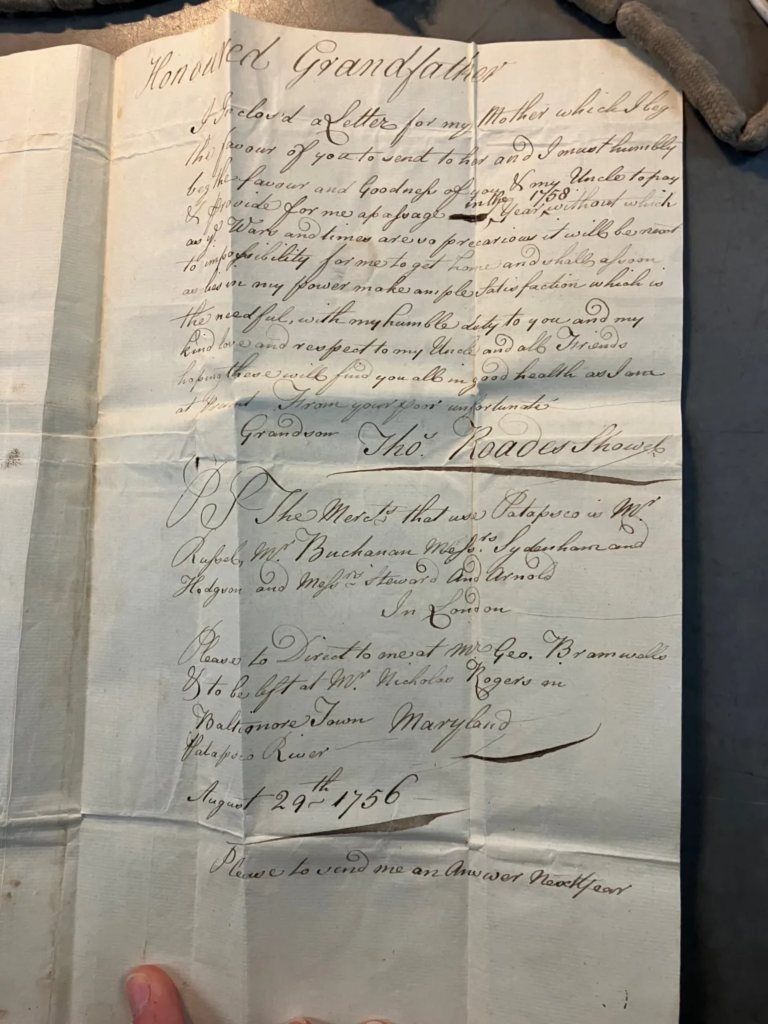 Honoured Grandfather
I Inclos'd a Letter for my Mother which I beg
the favour of you to send to her and I must humbly
beg the favour and Goodness of you & my Uncle to pay
& provide for me a passage in the Year 1758 without which
as ye Wars and times are so precarious it will be next
to impossibility for me to get home and shall assoon
as lies in my power make ample Satisfaction which is
the needful, with my humble duty to you and my
kind love and respect to my Uncle and all Friends
hoping these will find you all in good health as I am
at Present From your poor unfortunate
Grandson Thos. Roades Showel
PS The Mercts that use Patapsco is Mr
Russel, Mr Buchanan Messrs. Sydenham and
Hodgson and Messrs Steward And Arnold
In London
Please to Direct to me at Mr Geo. Bramwells
& to be left at Mr. Nicholas Rogers in
Baltimore Town Maryland
Patapsco River
August 29th 1756
Please to send me an Answer Next Year